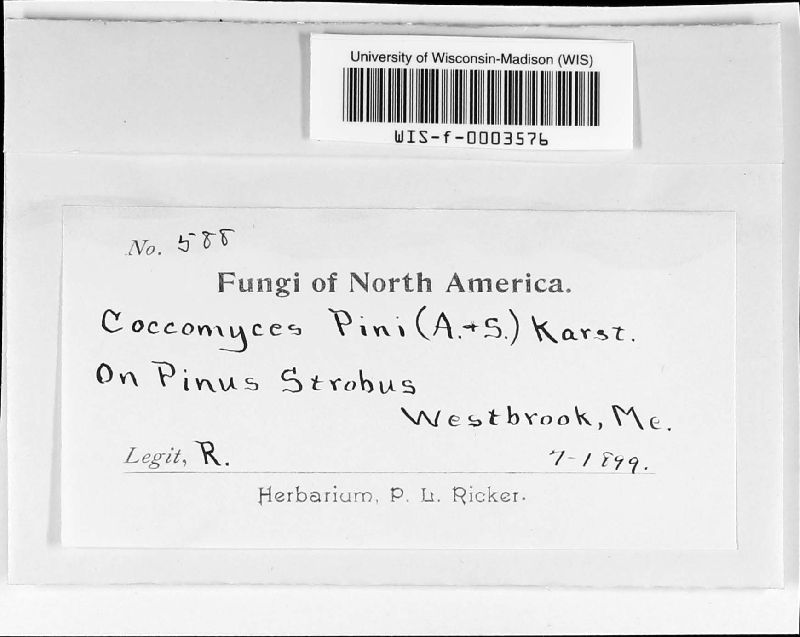 University of Wisconsin-Madison (WIS)
WIS-f-0003576
No. 588
Fungi of North America.
Coccomyces Pini (A.+S.) Karst.
On Pinus Strobus
Westbrook, Me.
Legit, R. 7-1899.
Herbarium, P. L. Ricker.